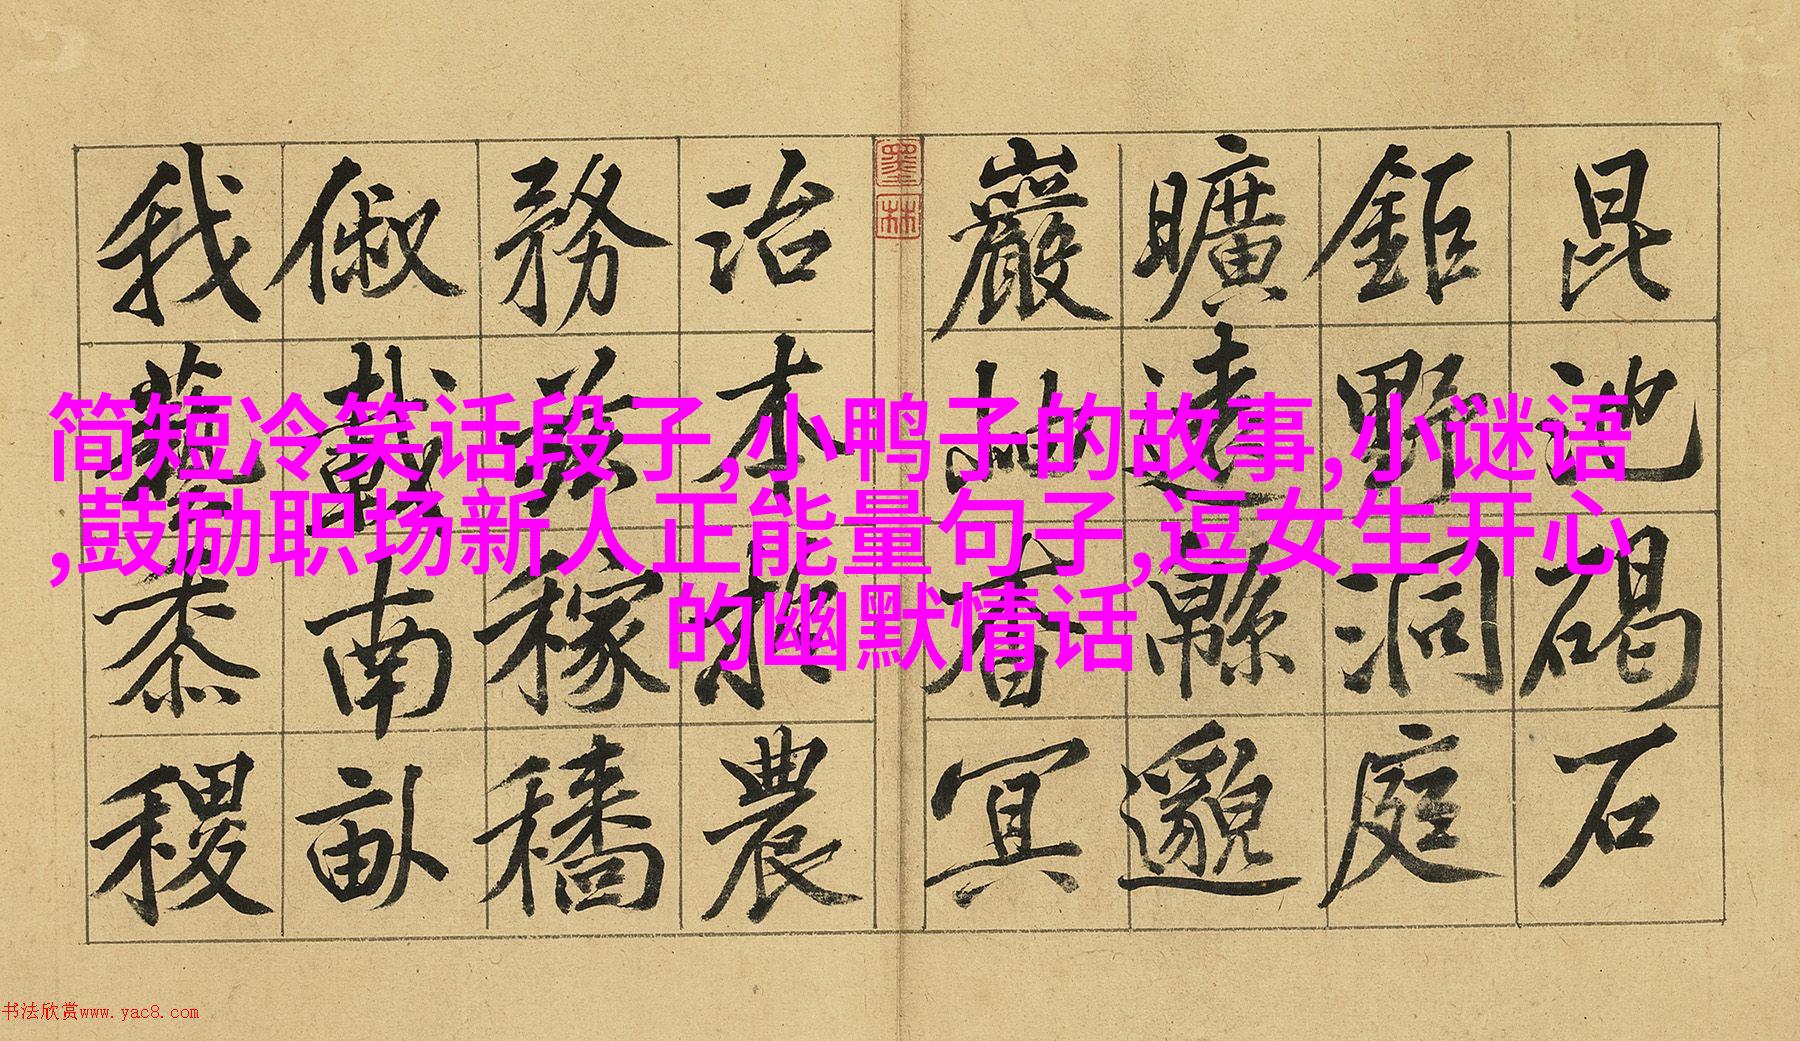 昆池碣石
鉅野洞庭
曠遠緜邈
巖岫杳冥
墨林
治本於農
務茲稼穡
俶載南畝
我藝黍稷
简短冷笑话段子,小鸭子的故事,小谜语
,鼓励职场新人正能量句子,逗女生开心
的幽默情话
书法欣赏www.yac8.com